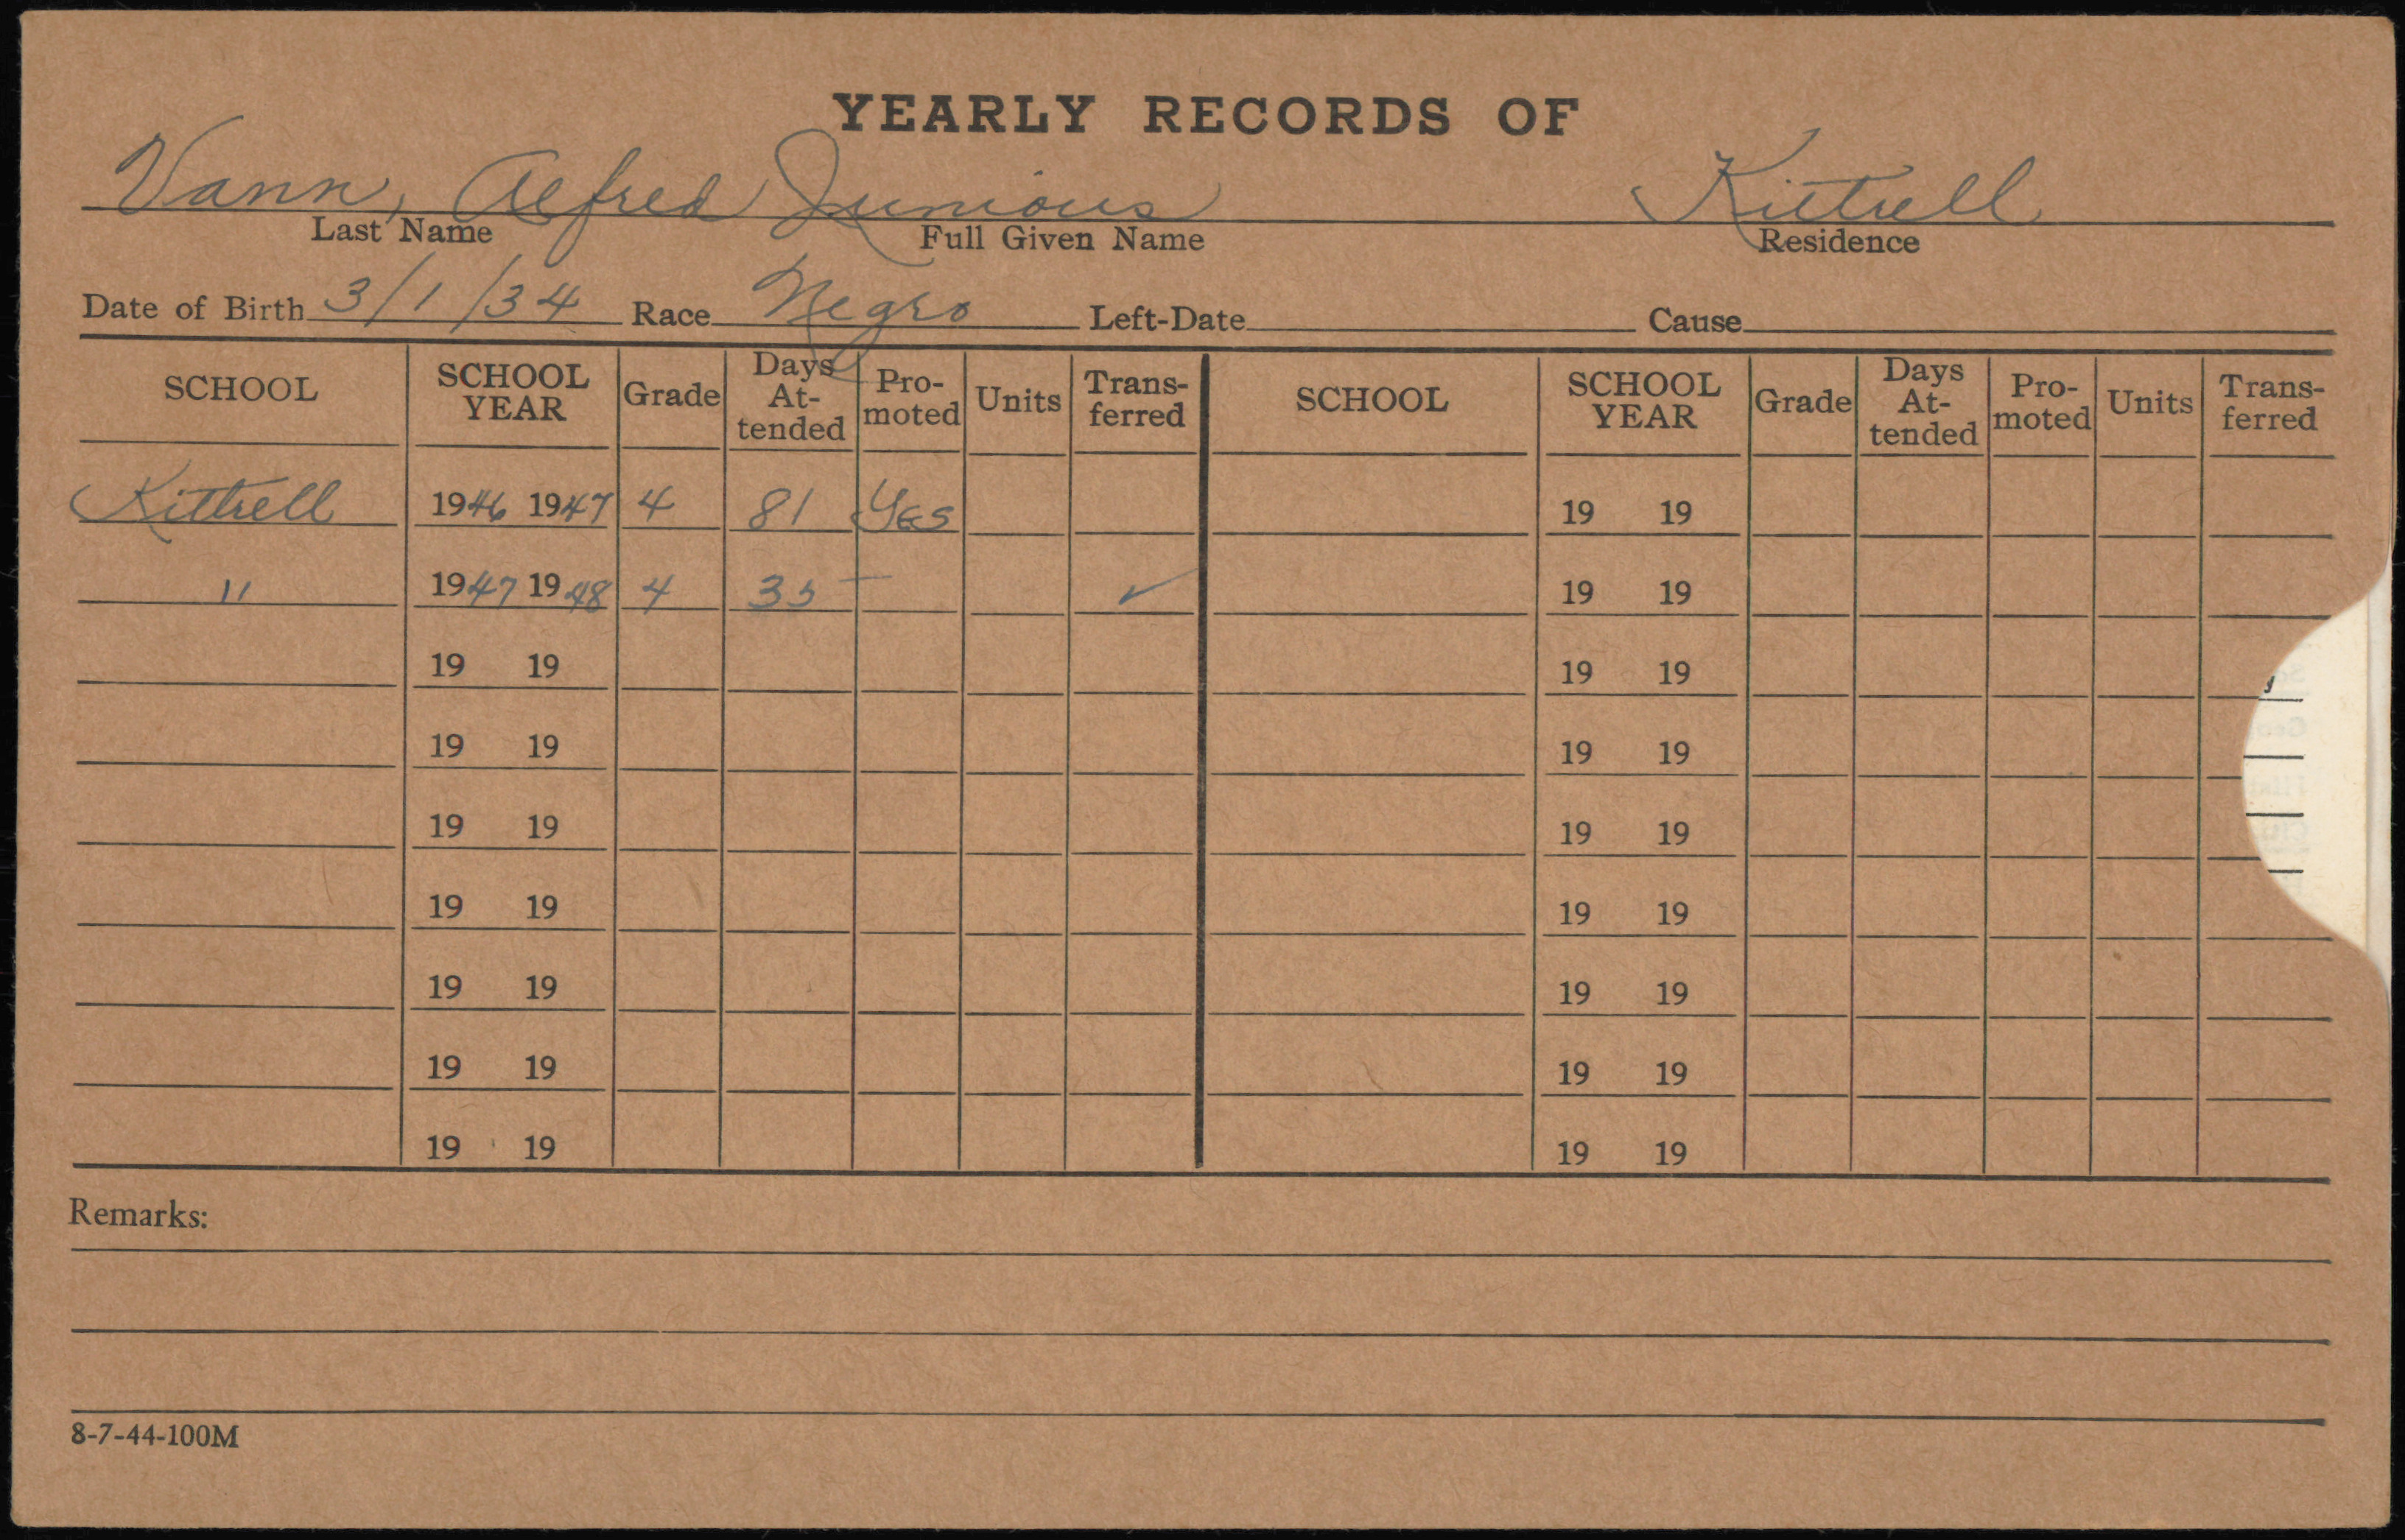 YEARLY RECORDS OF
Vann, Alfred Junious Kittrell
Last Name Full Given Name Residence
Date of Birth 3/1/34 Race Negro Left-Date Cause
SCHOOL SCHOOL YEAR Grade Days At-tended Pro-moted Units Trans-ferred SCHOOL SCHOOL YEAR Grade Days At-tended Pro-moted Units Trans-ferred
Kittrell 1946 1947 4 81 Yes 19 19
" 1947 1948 4 35 — ✓ 19 19
19 19 19 19
19 19 19 19
19 19 19 19
19 19 19 19
19 19 19 19
19 19 19 19
19 19 19 19
Remarks:
8-7-44-100M